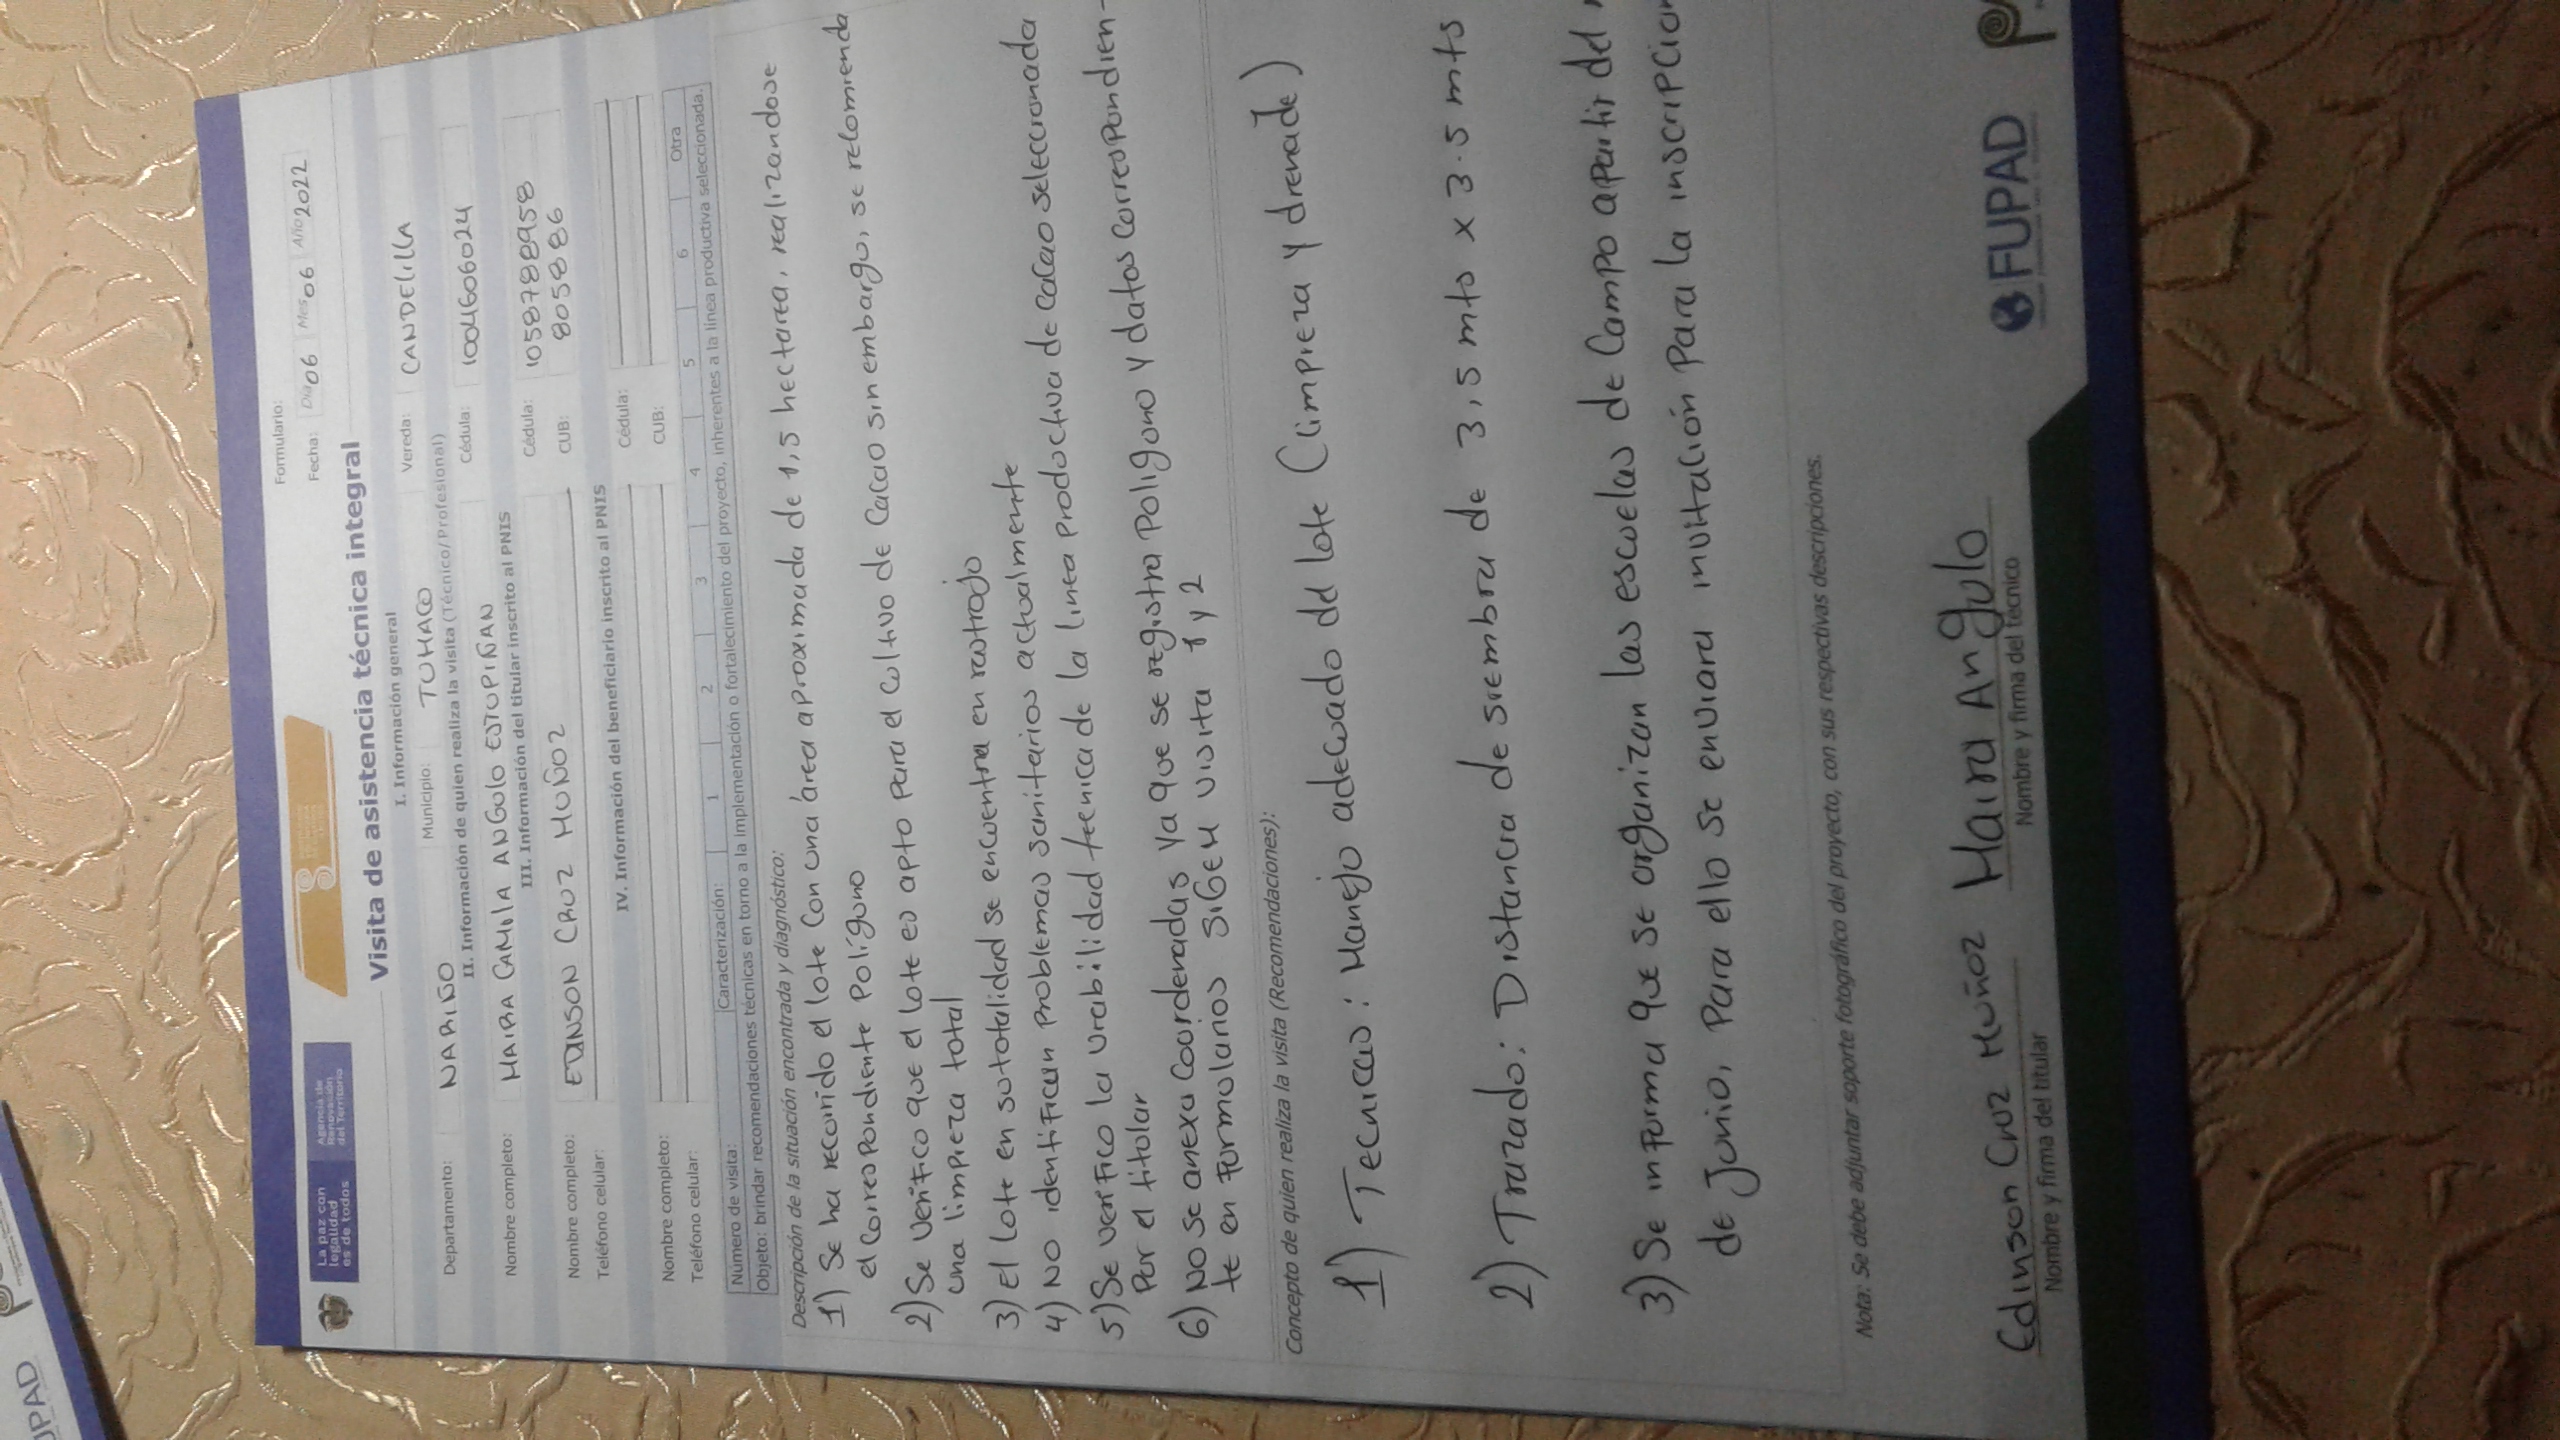 Formulario:
Fecha: Día 06 Mes 06 Año 2022
La paz con
legalidad
es de todos
Agencia de
Renovación
del Territorio
Visita de asistencia técnica integral
I. Información general
Departamento: NARIÑO Municipio: TUMACO Vereda: CANDELILLA
II. Información de quien realiza la visita (Técnico/Profesional)
Nombre completo: MAIRA CAMILA ANGULO ESTUPIÑAN Cédula: 1004606024
III. Información del titular inscrito al PNIS
Nombre completo: EDINSON CRUZ MUÑOZ Cédula: 1058788958
Teléfono celular: CUB: 8058886
IV. Información del beneficiario inscrito al PNIS
Nombre completo: Cédula:
Teléfono celular: CUB:
Número de visita: Caracterización: 1 2 3 4 5 6 Otra
Objeto: brindar recomendaciones técnicas en torno a la implementación o fortalecimiento del proyecto, inherentes a la línea productiva seleccionada.
Descripción de la situación encontrada y diagnóstico:
1) Se ha recorrido el lote con una área aproximada de 1,5 hectarea, realizandose
el correspondiente Polígono
2) Se verifico que el lote es apto para el cultivo de cacao sin embargo, se recomienda
una limpieza total
3) El lote en su totalidad se encuentra en rastrojo
4) No identifican problemas sanitarios actualmente
5) Se verifico la viabilidad tecnica de la linea productiva de cacao seleccionada
Por el titular
6) No se anexa coordenadas ya que se registra Poligono y datos correspondien-
te en formularios SIGEM visita 1 y 2
Concepto de quien realiza la visita (Recomendaciones):
1) Tecnicas: Manejo adecuado del lote (limpieza y drenade)
2) Trazado: Distancia de siembra de 3,5 mts x 3.5 mts
3) Se informa que se organizan las escuelas de Campo apartir del
de Junio, Para ello se enviara invitación Para la inscripcion
Nota: Se debe adjuntar soporte fotográfico del proyecto, con sus respectivas descripciones.
Edinson Cruz Muñoz Maira Angulo
Nombre y firma del titular Nombre y firma del técnico
FUPAD
UPAD